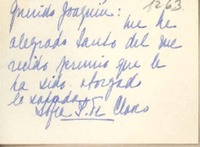 Querido Joaquín: 1263
me he
alegrado tanto del me
recido premio que le
ha sido otorgado
le
Sofía